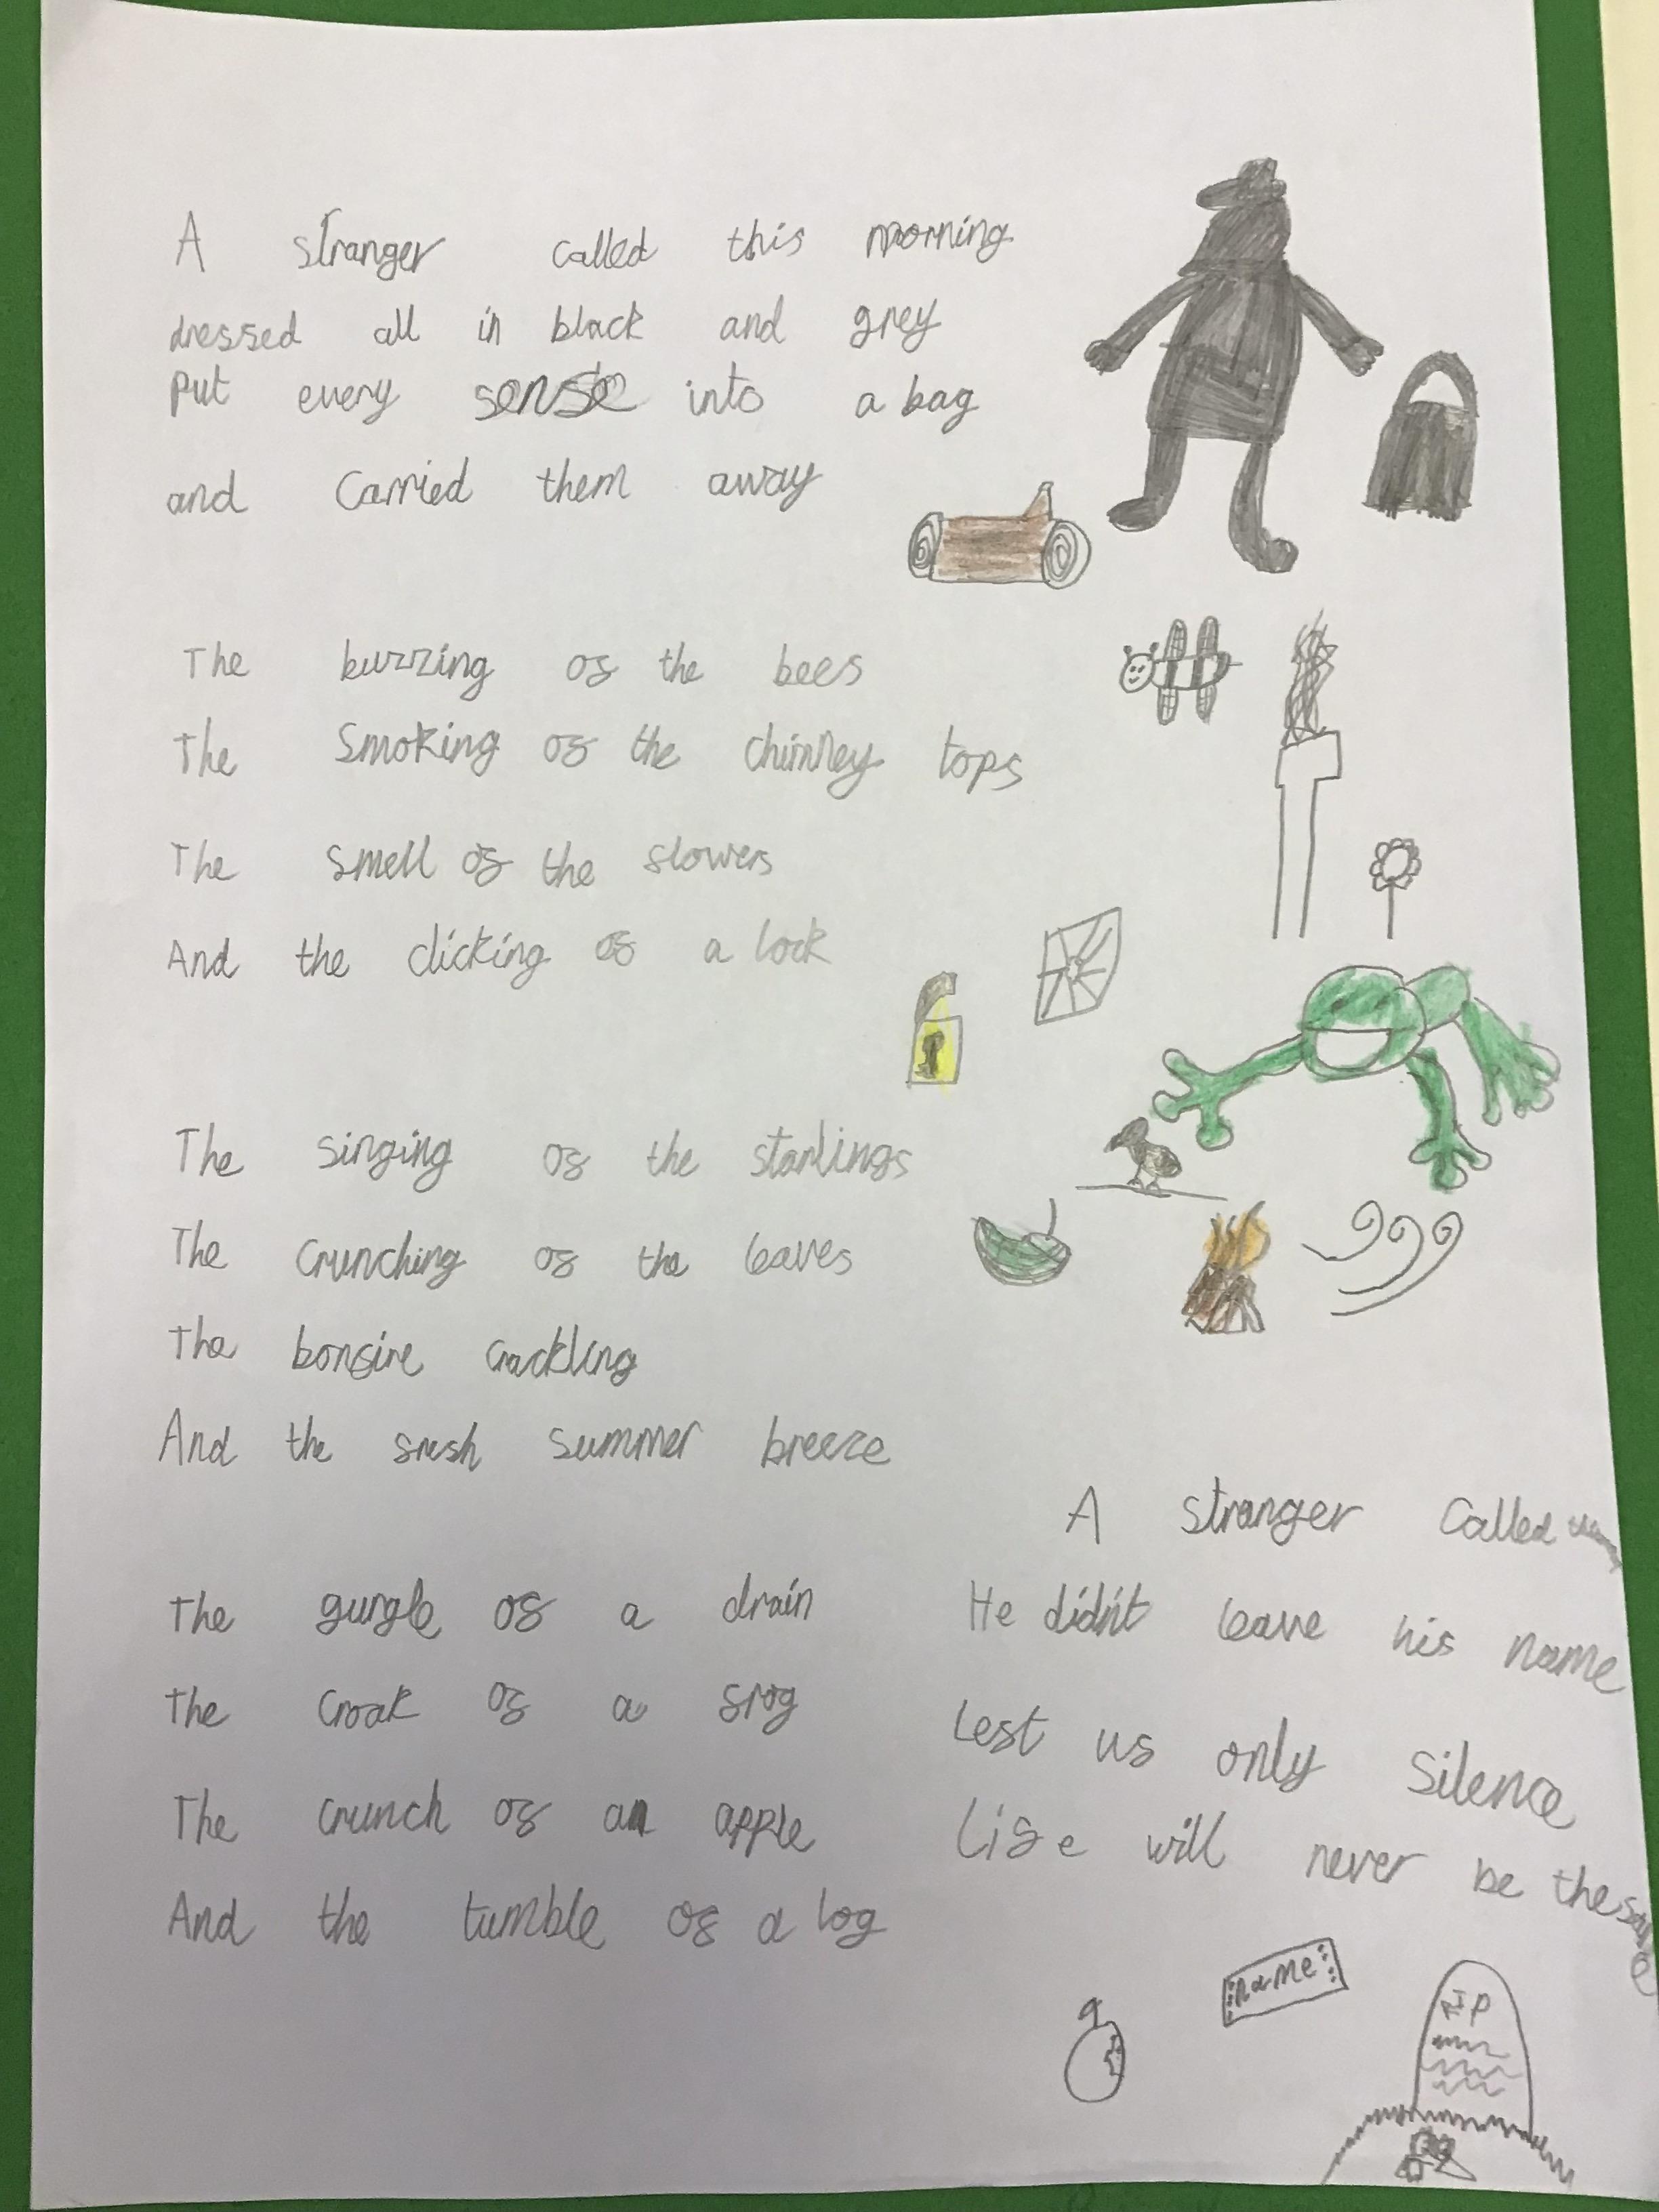 A stranger called this morning
dressed all in black and grey
put every sense into a bag
and carried them away
The buzzing of the bees
The smoking of the chimney tops
The smell of the flowers
And the clicking of a lock
The singing of the starlings
The crunching of the leaves
The bonfire crackling
And the fresh summer breeze
The gurgle of a drain
The croak of a frog
The crunch of an apple
And the tumble of a log
A stranger called
He didn't leave his name
Lest us only silence
Life will never be the same
name
RIP